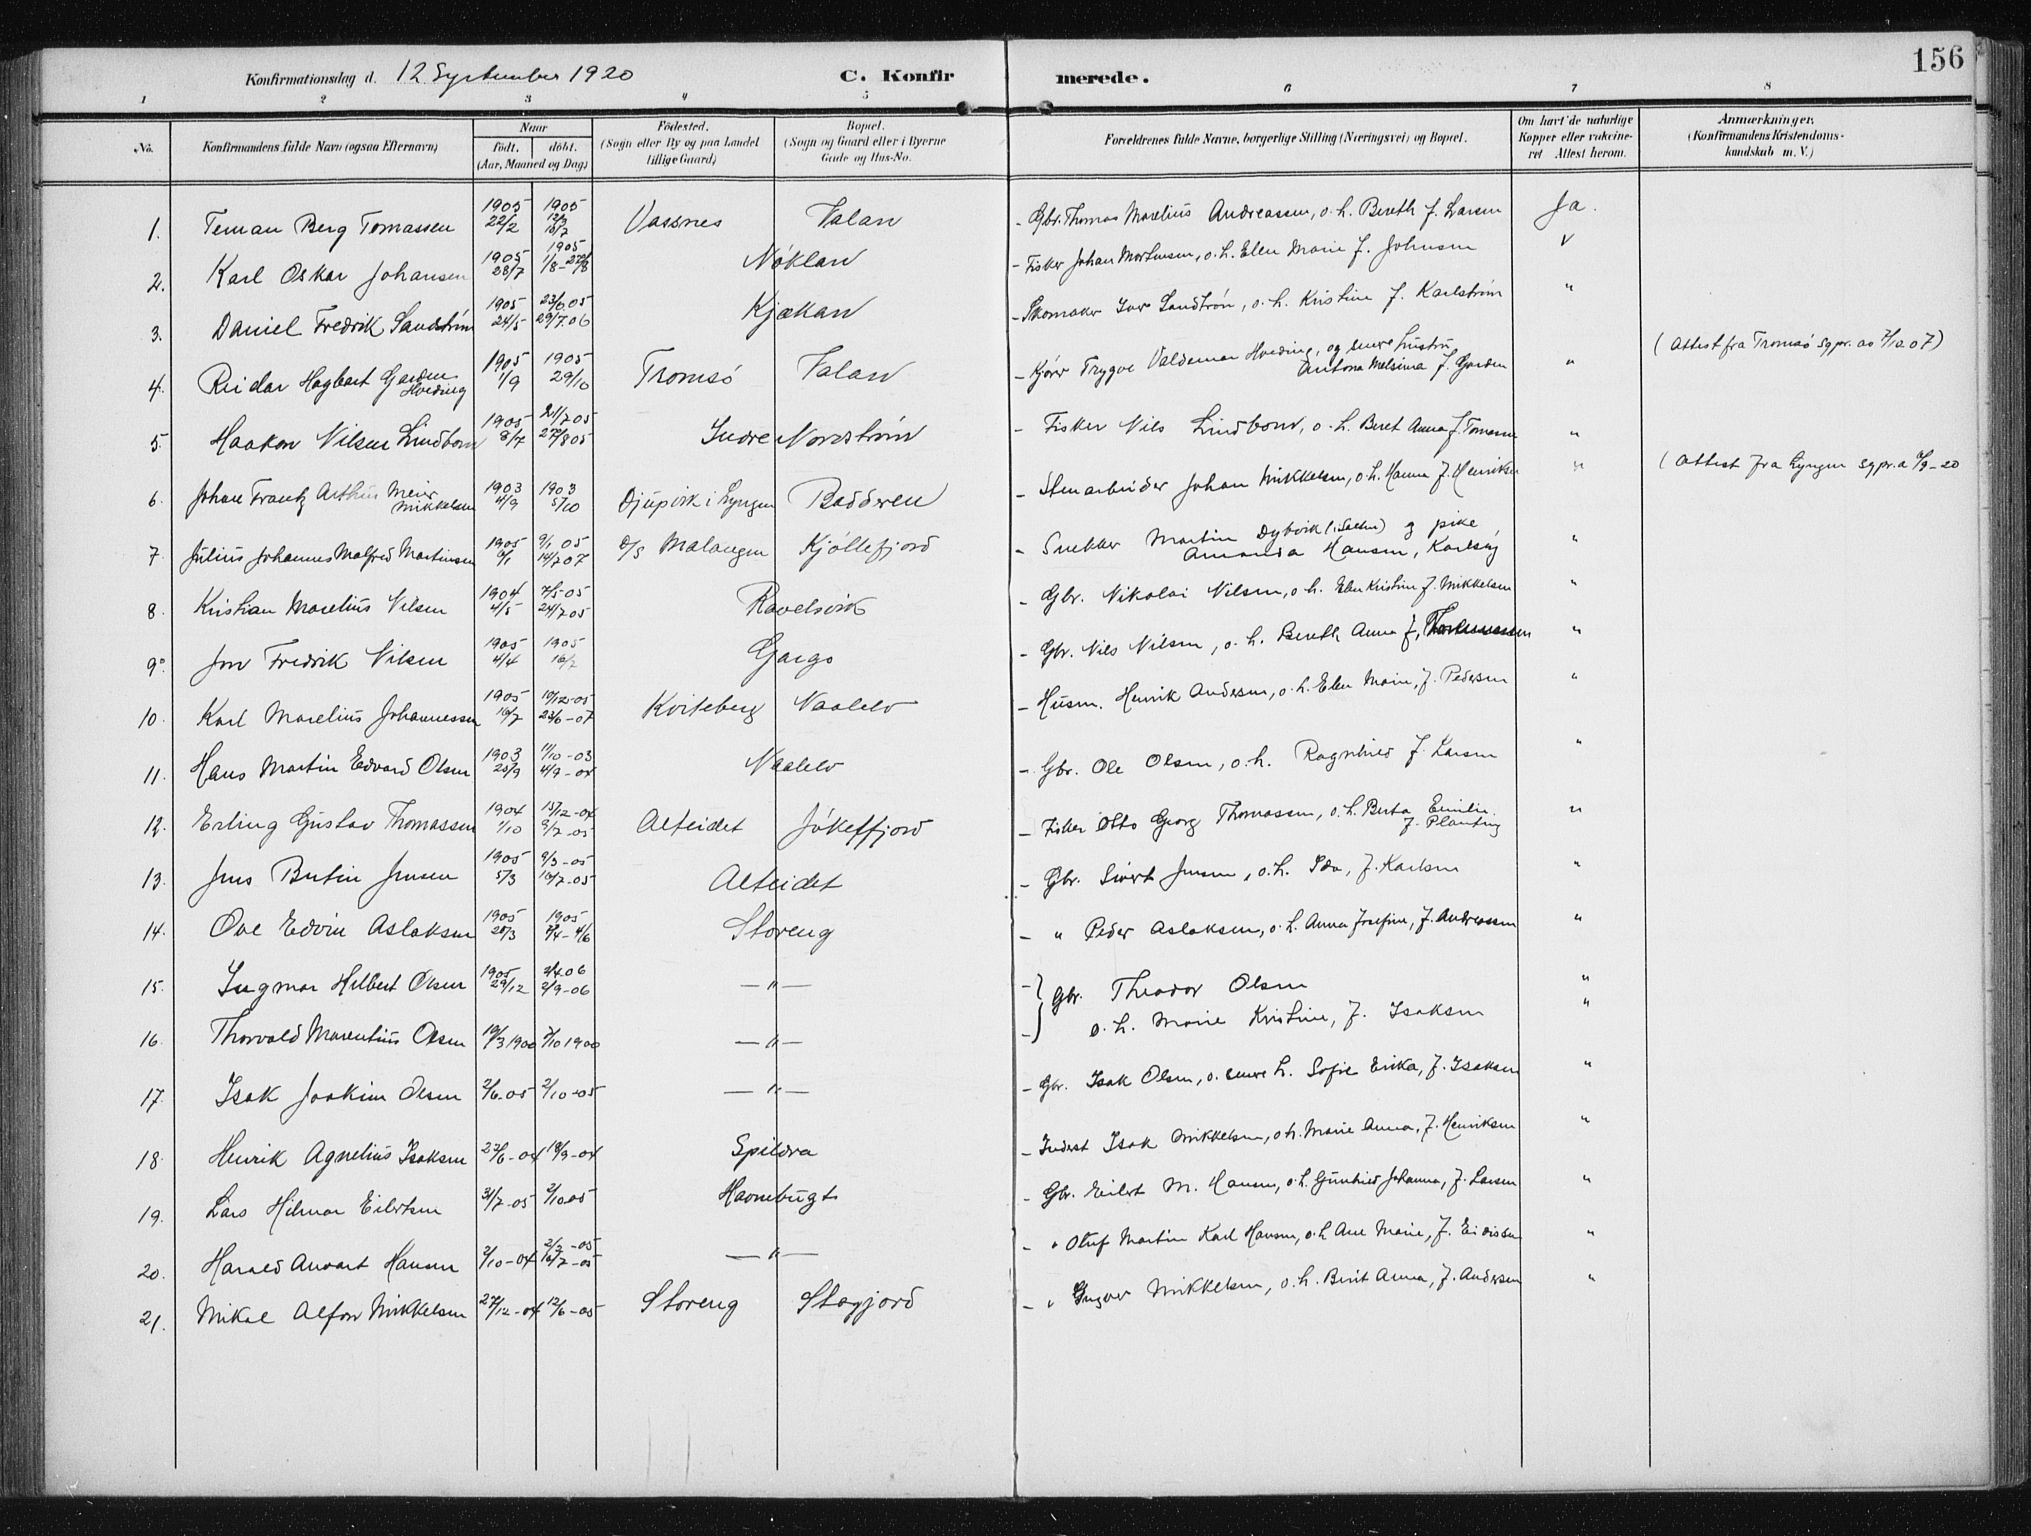 156
Konfirmationsdag d. 12 September 1920 C. Konfirmerede.
1 2 3 4 5 6 7 8
No. Konfirmandens fulde Navn (ogsaa Efternavn) Naar født. døbt. (Aar, Maaned og Dag) Fødested. (Sogn eller By og paa Landet tillige Gaard) Bopæl. (Sogn og Gaard eller i Byerne Gade og Hus-No. Forældrenes fulde Navne, borgerlige Stilling (Næringsvei) og Bopæl. Om havt de naturlige Kopper eller vakcineret Attest herom. Anmærkninger. (Konfirmandens Kristendomskundskab m. V.)
1. Teman Berg Tomassen 1905 22/2 1905 12/3 16/7 Vassnes Valan - Gbr. Thomas Marelius Andreassen, o. h. Bereth f. Larsen Ja.
2. Karl Oskar Johansen 1905 28/7 1905 1/8 - 27/8 Nøklan - Fisker Johan Mortensen, o. h. Elen Marie f. Johnsen v
3. Daniel Fredrik Sandstrøm 1905 24/5 23/6 05 29/7.06 Kjækan - Skomaker Ivar Sandstrøm, o. h. Kristine f. Karlstrøm "
4. Reidar Hagbart Garden Hveding 1905 1/9 1905 29/10 Tromsø Valan - Kjørr Trygve Valdemar Hveding, og senere hustru Antona Melsina f. Garden " (Attest fra Tromsø sgpr. ao 7/10 07)
5. Haakon Nilsen Lindbom 1905 8/7 21/7 05 27/8 05 Indre Nordstrøm - Fisker Nils Lindbom, o. h. Beret Anna f. Tomassen "
6. Johan Frantz Arthur Meier Mikkelsen 1903 4/9 1903 5/10 Djupvik i Lyngen Badderen - Stenarbeider Johan Mikkelsen, o. h. Hanna f. Henriksen " (Attest fra Lyngen sgpr. a 4/9-20
7. Julius Johannes Malfred Martinsen 1905 6/1 9/1 05 14/7 07 d/s Malangen Kjøllefjord - Snekker Martin Dybvik (i Salten) og pike Amanda Hansen, Karlsøy "
8. Kristian Marelius Nilsen 1904 4/5 7/5-05 24/7 05 Ravelsvik - Gbr. Nikolai Nilsen, o h. Elen Kristine f. Mikkelsen "
9. Jon Fredrik Nilsen 1905 4/4 1905 16/7 Gargo - Gbr. Nils Nilsen, o. h. Bereth Anna f. "
10. Karl Marelius Johannessen 1905 16/7 10/12-05 23/6-07 Kviteberg Naalelv - Husm. Henrik Andersen, o. h. Elen Marie, f. Pedersen "
11. Hans Martin Edvard Olsen 1903 25/9 11/10-03 4/9-04 Naalelv - Gbr. Ole Olsen, o. h. Ragnhild f. Larsen "
12. Erling Gustav Thomassen 1904 1/10 15/12-04 9/7-05 Alteidet Jøkelfjord - Fisker Otto Georg Thomassen, o. h. Berta Emilie f. Planting "
13. Jens Butin Jensen 1905 5/3 9/3-05 16/7-05 Alteidet - Gbr. Sivert Jensen, o. h. Ida, f. Karlsen "
14. Ove Edvin Aslaksen 1905 28/3 1905 2/4-4/6 Storeng - " Peder Aslaksen, o. h. Anna Josefine, f. Andreassen "
15. Ingmar Hilbert Olsen 1905 29/12 2/4.06 2/9-06 - " - - } Gbr. Theodor Olsen "
16. Thorvald Marentius Olsen 10/3 1900 7/10 1900 - " - - } o. h. Marie Kristine, f. Isaksen "
17. Isak Joakim Olsen 2/6-05 2/10-05 - " - - Gbr. Isak Olsen, o. senere h. Sofie Erika, f. Isaksen "
18. Henrik Agnelius Isaksen 23/6-04 18/9-04 Spildra - Inderst Isak Mikkelsen, o h. Marie Anna, f. Henriksen "
19. Lars Hilmar Eilertsen 31/7-05 2/10 05 Havnebugt - Gbr. Eilert M. Hansen, o. h. Gunhild Johanna, f. Larsen "
20. Harald Anvart Hansen 2/10-04 2/3-05 16/7-05 - " - - " Oluf Martin Karl Hansen, o. h Ane Marie, f. Eidissen "
21. Mikal Alfon Mikkelsen 27/12-04 12/6-05 Storeng Stogjord - " Ingver Mikkelsen, o. h. Berit Anna, f. Andersen "